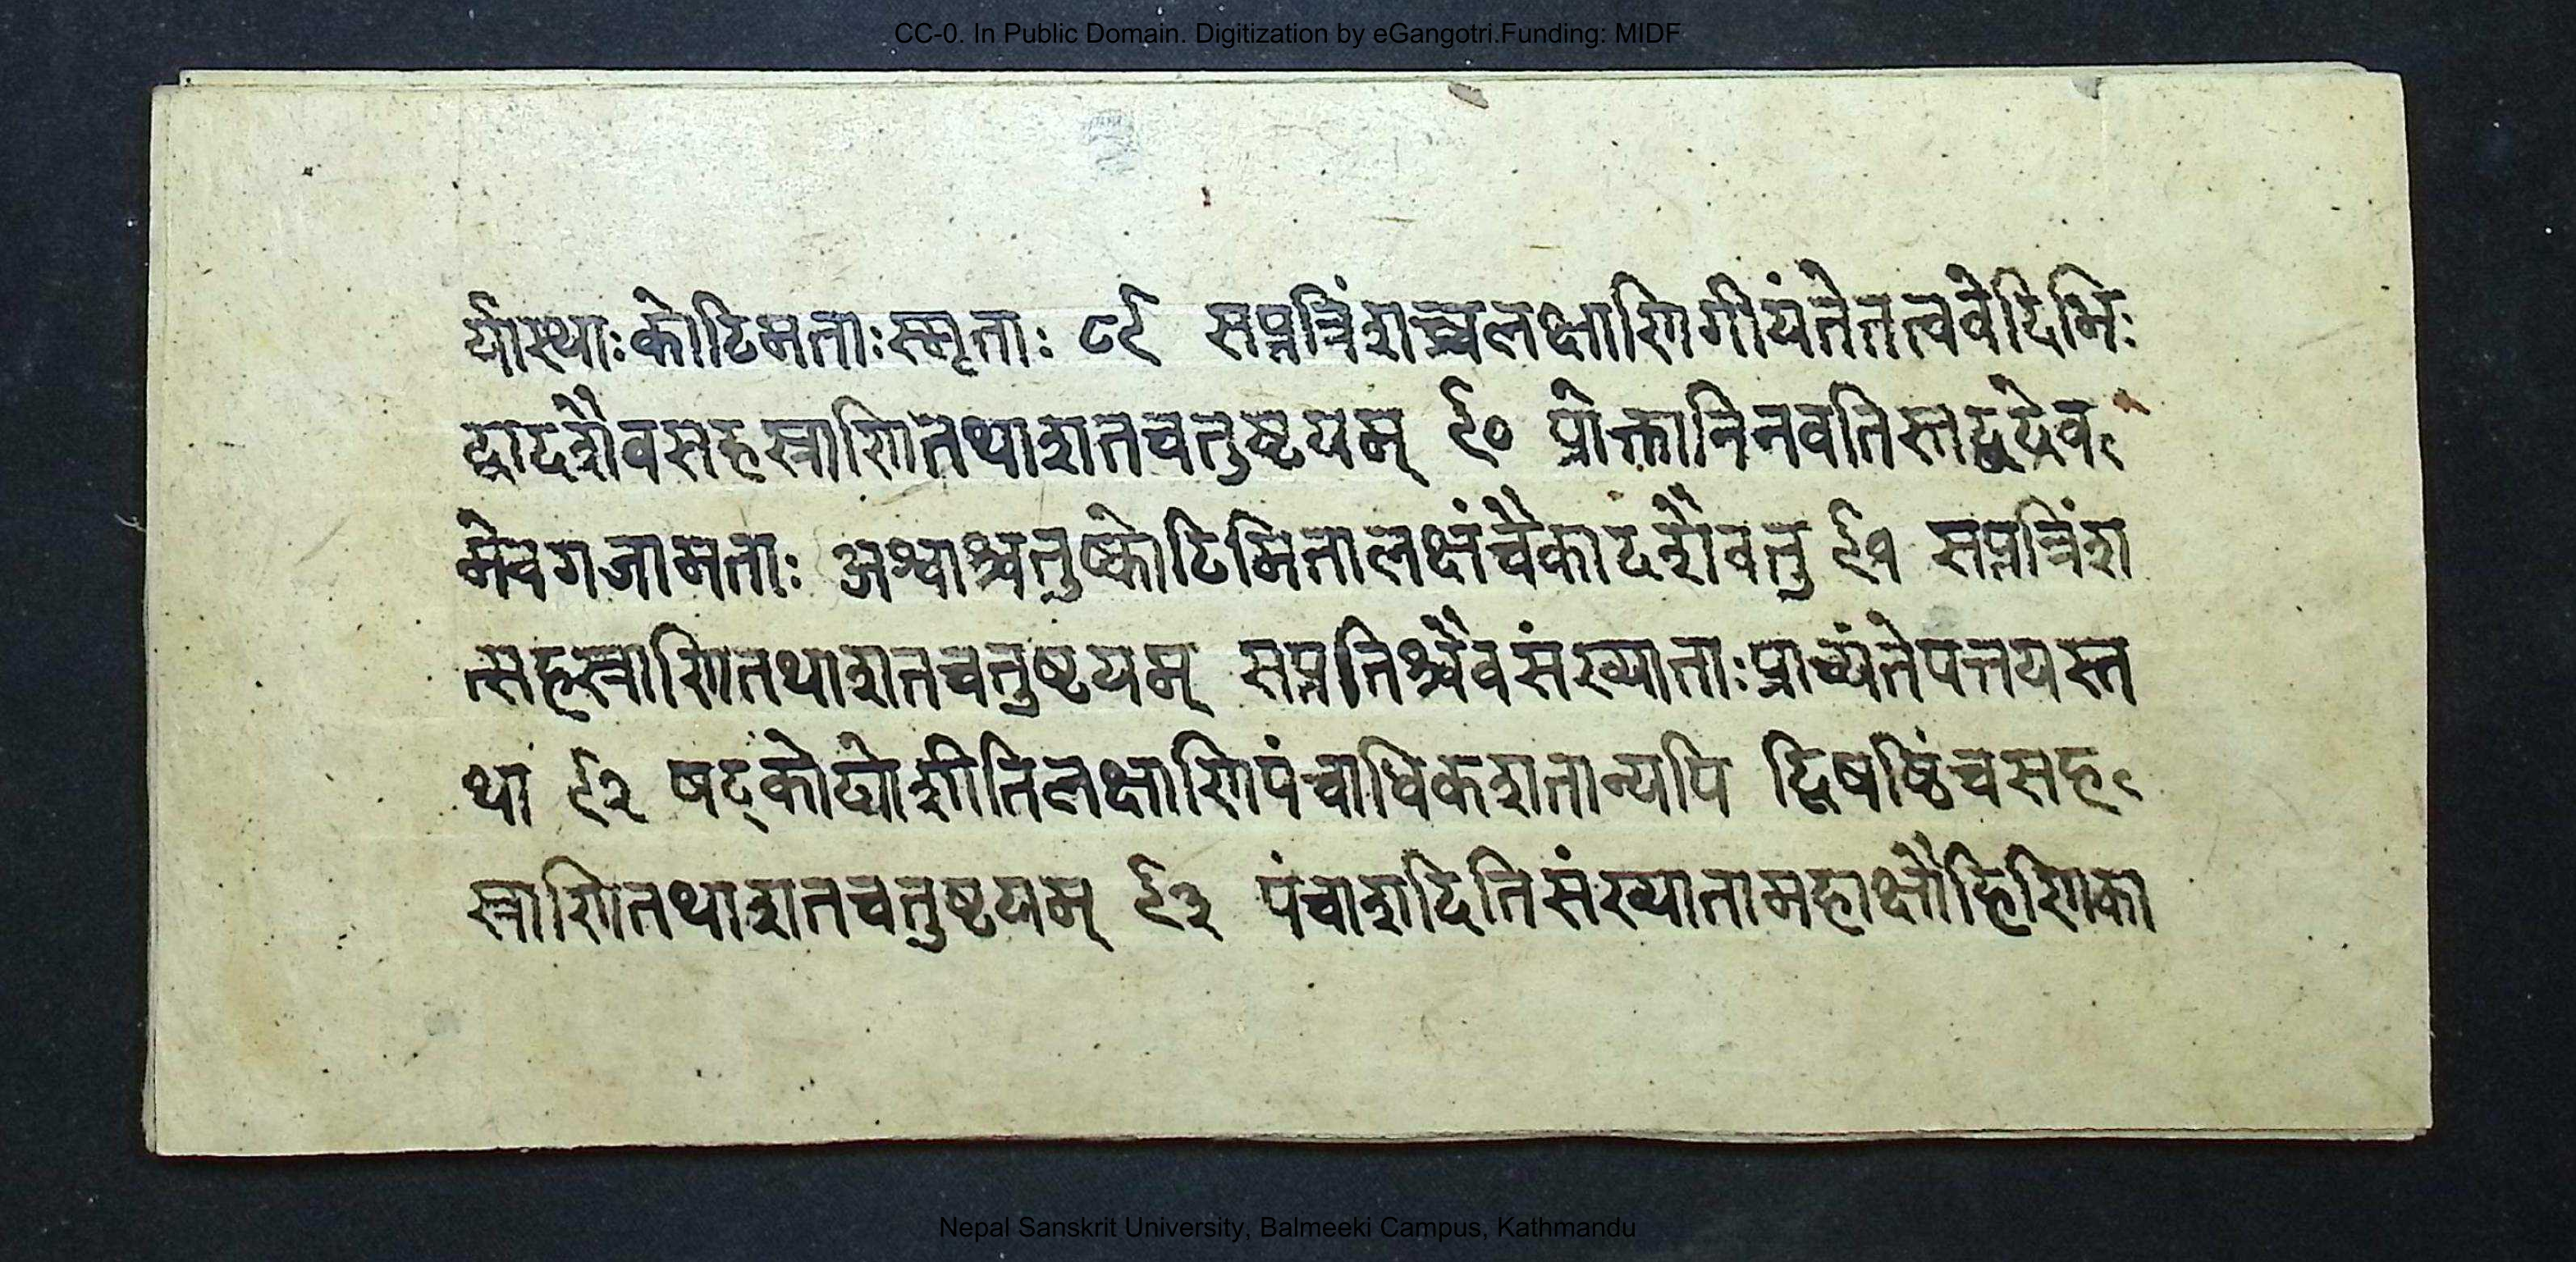 CC-0. In Public Domain. Digitization by eGangotri.Funding: MIDF
र्यास्थाः कोटिमताः स्मृताः ८९ सप्तत्रिंशच्चलक्षाणिगीयंतेतत्ववेदिभिः
द्वादशैवसहस्त्राणितथाशतचतुष्टयम् ९० प्रोक्तानिनवतिस्तद्वदेव
मेवगजामताः अश्वाश्चतुष्कोटिमितालक्षंचैकादशैवतु ९१ सप्तत्रिंश
त्सहस्त्राणितथाशतचतुष्टयम् सप्ततिश्चैवसंख्याताःप्राच्यंतेपत्तयस्त
था ९२ षट्कोट्योशीतिलक्षाणिपंचाधिकशतान्यपि द्विषष्ठिंचसह
स्त्राणितथाशतचतुष्टयम् ९३ पंचाशदितिसंख्यातामहाक्षौहिणिका
Nepal Sanskrit University, Balmeeki Campus, Kathmandu